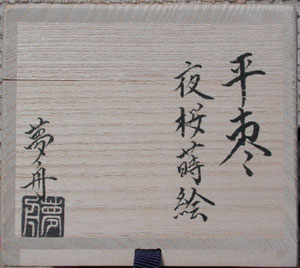 平棗
夜桜蒔絵
夢舟